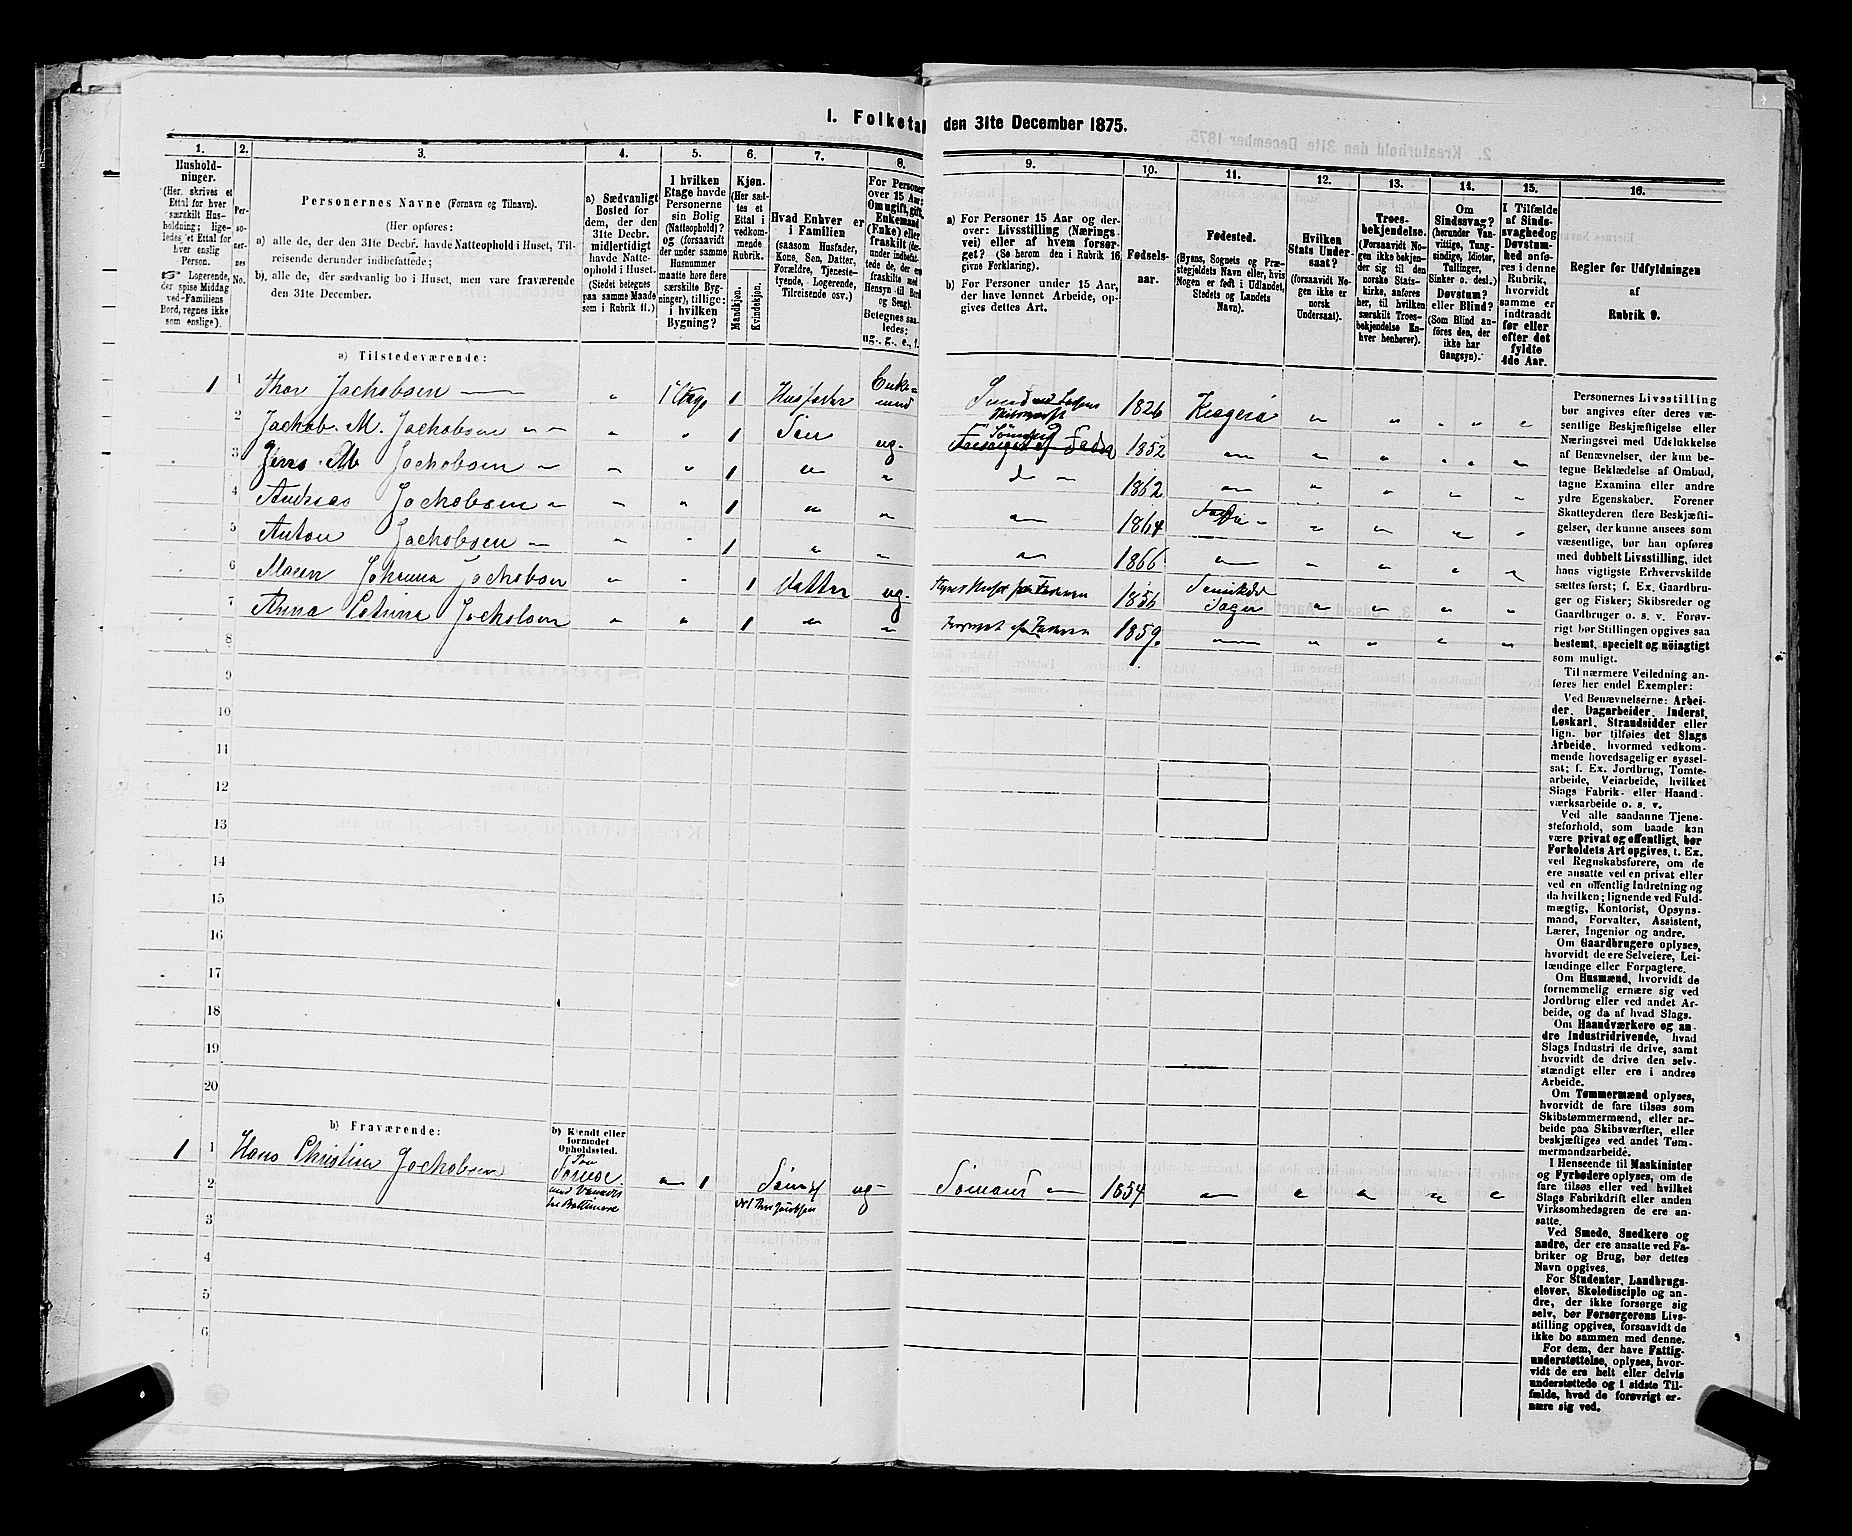 1. Folketal den 31te December 1875.
1. 2. 3. 4. 5. 6. 7. 8. 9. 10. 11. 12. 13. 14. 15. 16.
Hushold-
ninger.
(Her skrives et
Ettal for hver
særskilt Hus-
holdning; lige-
ledes et Ettal for
hver enslig
Person.
☞ Logerende,
der spise Middag
ved Familiens
Bord, regnes ikke
som enslige).
Per-
so-
ner-
nes
No.
Personernes Navne (Fornavn og Tilnavn).
(Her opføres:
a) alle de, der den 31te Decbr. havde Natteophold i Huset, Til-
reisende derunder indbefattede;
b) alle de, der sædvanlig bo i Huset, men vare fraværende
den 31te December.
a) Sædvanligt
Bosted for
dem, der den
31te Decbr.
midlertidigt
havde Natte-
ophold i Huset.
(Stedet betegnes
paa samme Maade
som i Rubrik 11.)
I hvilken
Etage havde
Personerne
sin Bolig
(Natteophold)?
og (forsaavidt
der under samme
Husnummer
maatte høre flere
særskilte Byg-
ninger), tillige:
i hvilken
Bygning?
Kjøn.
(Her sæt-
tes et
Ettal i
vedkom-
mende
Rubrik.
Mandkjøn.
Kvindekjøn.
Hvad Enhver er
i Familien
(saasom Husfader,
Kone, Søn, Datter,
Forældre, Tjeneste-
tyende, Logerende,
Tilreisende osv.)
For Personer
over 15 Aar:
Om ugift, gift,
Enkemand
(Enke) eller
fraskilt (der-
under indbefat-
tede de, der ere
fraskilte med
Hensyn til Bord
og Seng)
Betegnes saa-
ledes:
ug., g., e., f.
a) For Personer 15 Aar og der-
over: Livsstilling (Nærings-
vei) eller af hvem forsør-
get? (Se herom den i Rubrik 16
givne Forklaring).
b) For Personer under 15 Aar,
der have lønnet Arbeide, op-
gives dettes Art.
Fødsels-
aar.
Fødested.
(Byens, Sognets og Præ-
stegjeldets Navn eller, hvis
Nogen er født i Udlandet,
Stedets og Landets
Navn).
Hvilken
Stats Under-
saat?
(forsaavidt No-
gen ikke er
norsk
Undersaat).
Troes-
bekjendelse.
(Forsaavidt No-
gen ikke bekjen-
der sig til den
norske Stats-
kirke, anføres
her, til hvilken
særskilt Troes-
bekjendelse En-
hver henhører).
Om
Sindssvag?
(herunder Van-
vittige, Tung-
sindige, Idioter,
Tullinger,
Sinker o. desl.)
Døvstum?
eller Blind?
(Som Blind an-
føres den, der
ikke har
Gangsyn).
I Tilfælde
af Sinds-
svaghed og
Døvstum-
hed anfø-
res i denne
Rubrik,
hvorvidt
samme er
indtraadt
før eller
efter det
fyldte
4de Aar.
Regler for Udfyldningen
af
Rubrik 9.
a) Tilstedeværende:
1 1 Thor Jachobsen 1 Etage 1 Husfader Enke-mand 1826 Kragerø
2 Jachob. M. Jachobsen 1 Søn ug. 1852
3 Jens. M Jachobsen 1 do 1862
4 Andreas Jachobsen 1 1864
5 Anton Jachobsen 1 1866
6 Maren Johanna Jachobsen 1 Datter ug. 1856
7 Anna Catrina Jachobsen 1 Forsørget af Faderen 1859.
8
9
10
11
12
13
14
15
16
17
18
19
20
b) Fraværende:
b) Kjendt eller
formodet
Opholdssted.
1 1 Hans Christian Jachobsen 1 ug Sømand 1854
2
3
4
5
6
Personernes Livsstilling
bør angives efter deres væ-
sentlige Beskjæftigelse eller
Næringsvei med Udelukkelse
af Benævnelser, der kun be-
tegne Beklædelse af Ombud,
tagne Examina eller andre
ydre Egenskaber. Forener
Skatteyderen flere Beskjæfti-
gelser, der kunne ansees som
væsentlige, bør han opføres
med dobbelt Livsstilling, idet
hans vigtigste Erhvervskilde
sættes først; f. Ex. Gaardbru-
ger og Fisker; Skibsreder og
Gaardbruger o. s. v. Forøv-
rigt bør Stillingen opgives saa
bestemt, specielt og nøiagtigt
som muligt.
Til nærmere Veiledning an-
føres her endel Exempler:
Ved Benævnelserne: Arbei-
der, Dagarbeider, Inderst,
Løskarl, Strandsidder eller
lign. bør tilføies det Slags
Arbeide, hvormed vedkom-
mende hovedsagelig er syssel-
sat; f. Ex. Jordbrug, Tomte-
arbeide, Veiarbeide, hvilket
Slags Fabrik- eller Haand-
værksarbeide o. s. v.
Ved alle saadanne Tjene-
steforhold, som baade kan
være privat og offentligt, bør
Forholdets Art opgives, f. Ex.
ved Regnskabsførere, om de
ere ansatte ved en privat eller
ved en offentlig Indretning og
da hvilken; lignende ved Fuld-
mægtig, Kontorist, Opsyns-
mand, Forvalter, Assistent,
Lærer, Ingeniør og andre.
Om Gaardbrugere oplyses,
hvorvidt de ere Selveiere, Lei-
lændinge eller Forpagtere.
Om Husmænd, hvorvidt de
fornemmelig ernære sig ved
Jordbrug eller ved andet Ar-
beide, og da af hvad Slags.
Om Haandværkere og an-
dre Industridrivende, hvad
Slags Industri de drive, samt
hvorvidt de drive den selv-
stændigt eller ere i andres
Arbeide.
Om Tømmermænd oplyses,
hvorvidt de fare tilsøs som
Skibstømmermænd, eller ar-
beide paa Skibsværfter, eller
beskjæftiges ved andet Tøm-
mermandsarbeide.
I Henseende til Maskinister
og Fyrbødere oplyses, om de
fare tilsøs eller ved hvilket
Slags Fabrikdrift eller anden
Virksomhedsgren de ere an-
satte.
Ved Smede, Snedkere og
andre, der ere ansatte ved Fa-
briker og Brug, bør dettes
Navn opgives.
For Studenter, Landbrugs-
elever, Skoledisciple og an-
dre, der ikke forsørge sig
selv, bør Forsørgerens Livs-
stilling opgives, forsaavidt de
ikke bo sammen med denne.
For dem, der have Fattig-
understøttelse, oplyses, hvor-
vidt de ere helt eller delvis
understøttede og i sidste Til-
fælde, hvad de forøvrigt er-
nære sig ved.